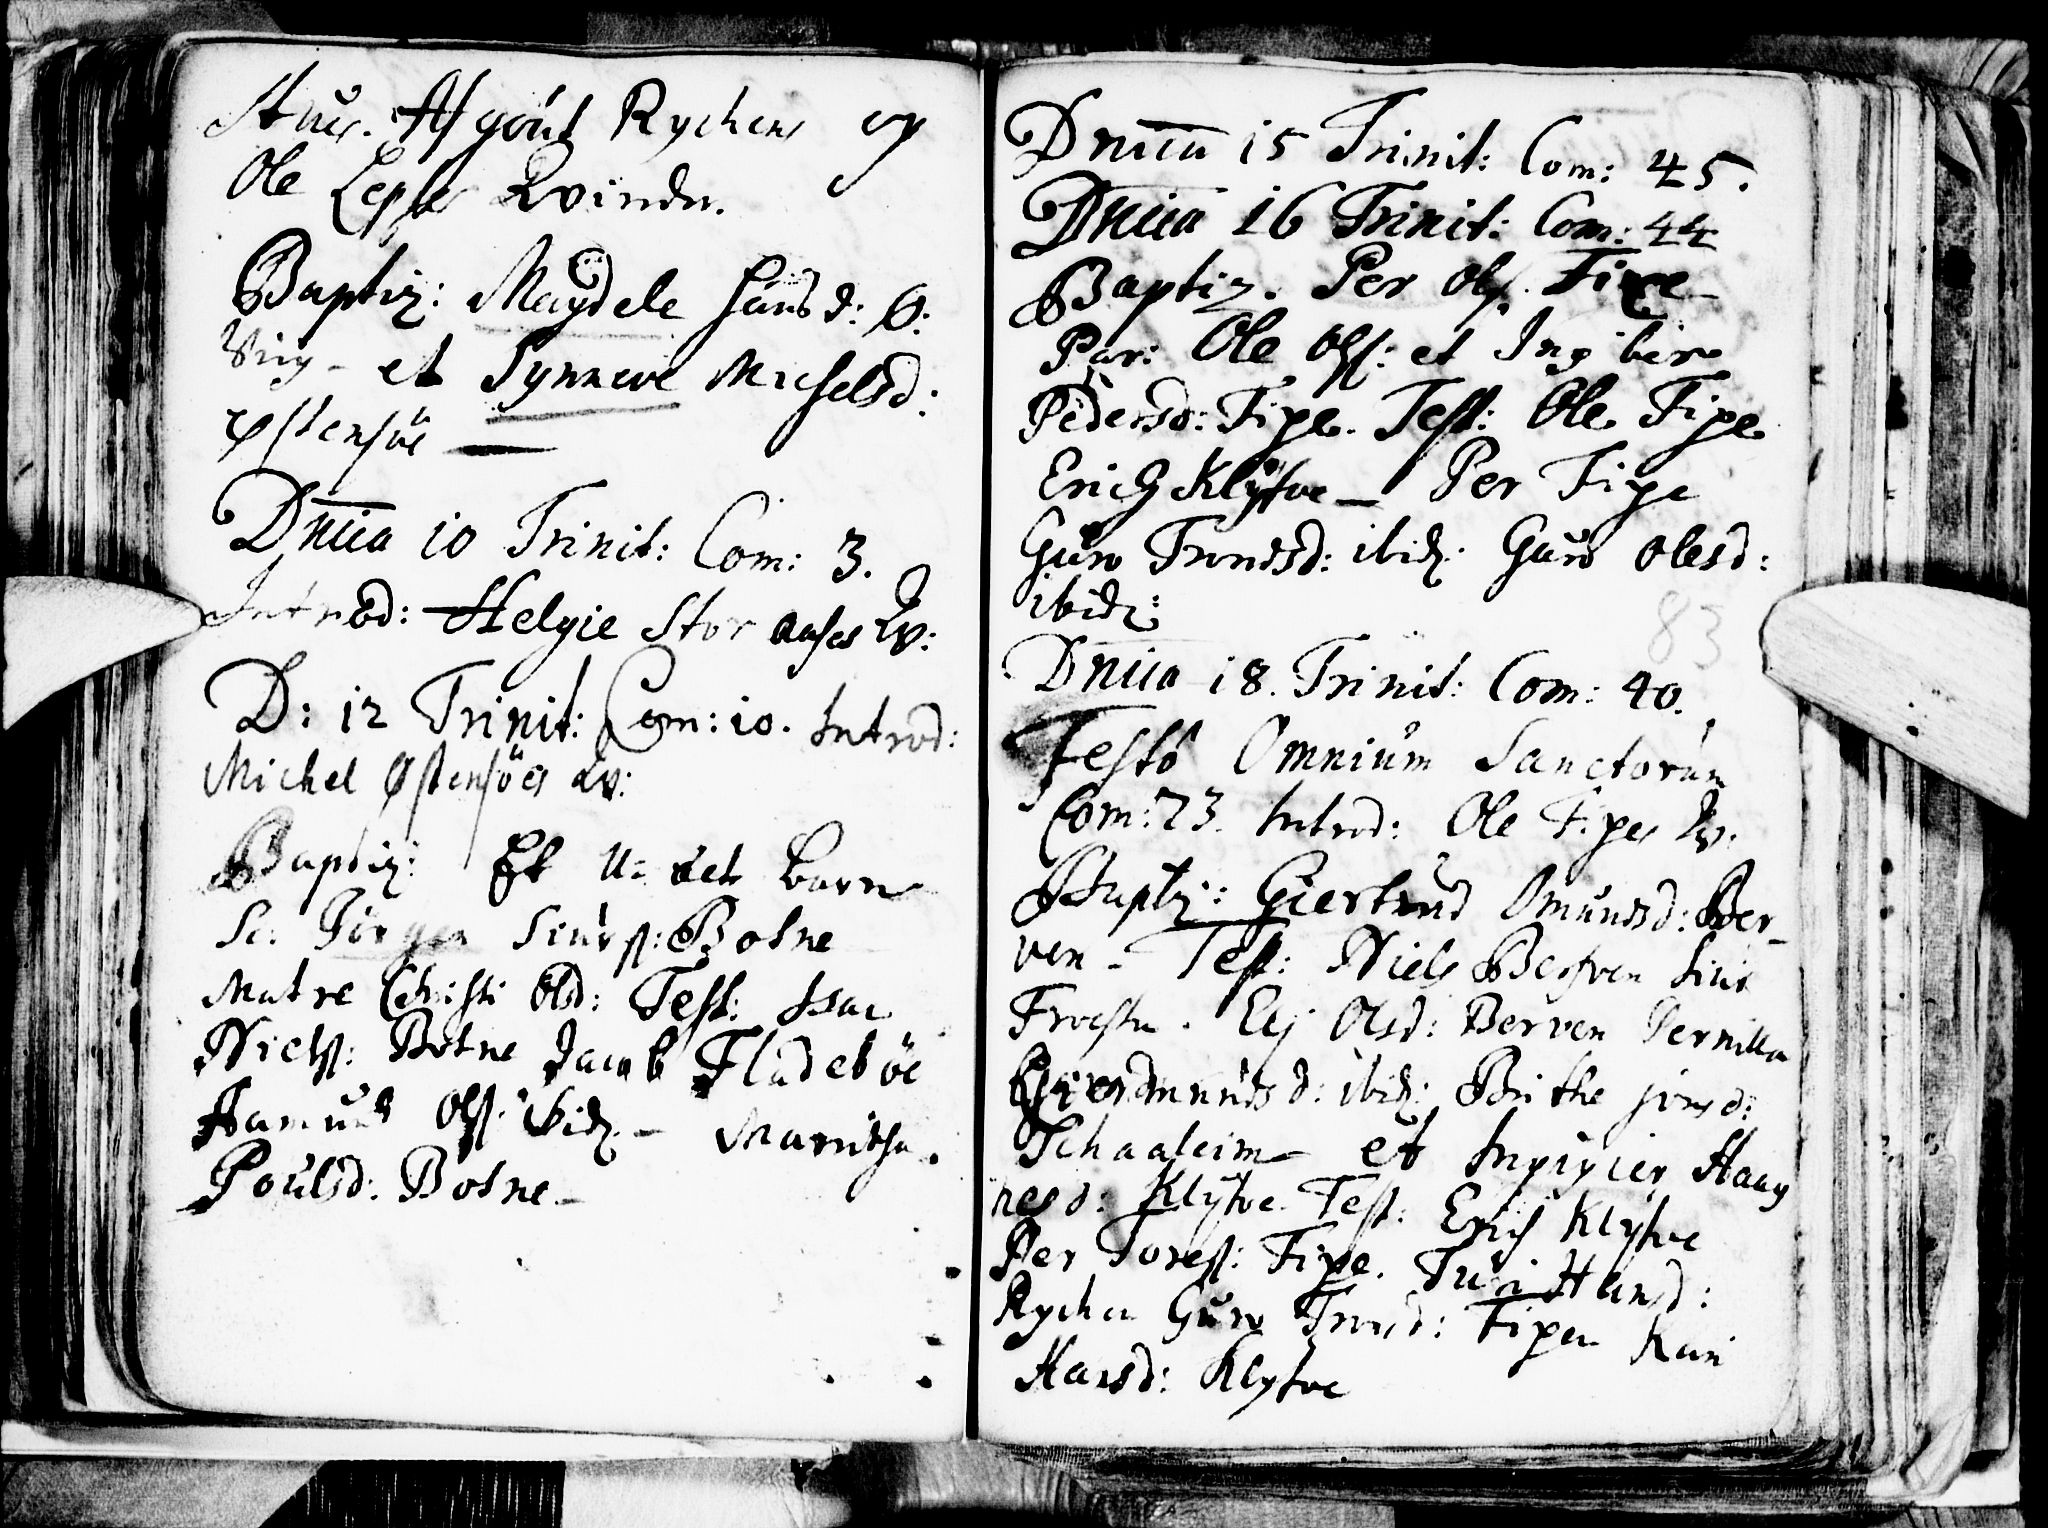 Aff goût Rychens og
Ole Lepses Qvinder.
Baptiz: Magdele Hansd: Ø:
Viig - et Synneve Michelsd:
Østensöe
Dnica 10 Trinit: Com: 3.
Introd: Helgie Stor aases Qv:
D: 12 Trinit: Com: 10. Introd:
Michel Østensöes qv:
Baptiz: Et U: ect barn
Sc: Jörgen Siurs: Botne
Matre Christi Olsd: Test: Isac
Niels: Botne Jacob Fladeböe
Aamund Ols: ibid: - Maritha
Poulsd: Botne -
Dnica 15 Trinit: Com: 45.
Dnica 16 Trinit: Com: 44
Baptiz. Per Ols. Fixe
Par: Ole Ols: et Ingbere
Pedersd: Fixe. Test: Ole Fixe
Erich Klyfve - Per Fixe
Guro Trondsd: ibid: Guro Olesd:
ibid:
83
Dnica 18. Trinit: Com: 40.
Festo Omnium Sanctorum
Com: 73. Introd: Ole Fixes Qv.
Baptz: Giertrud Omundsd: Ber-
ven - Test: Niels Berfven Siur
Eli Olsd: Berven Pernilla
ibid: Brithe
Schaaleim et Ingigier Haag
nesd: Klyfve Test: Erich Klyfve
Per Tores: Fixe. Turi Hansd:
Rychen Guro Tronsd: Fixen Kari
Hansd: Klyfve